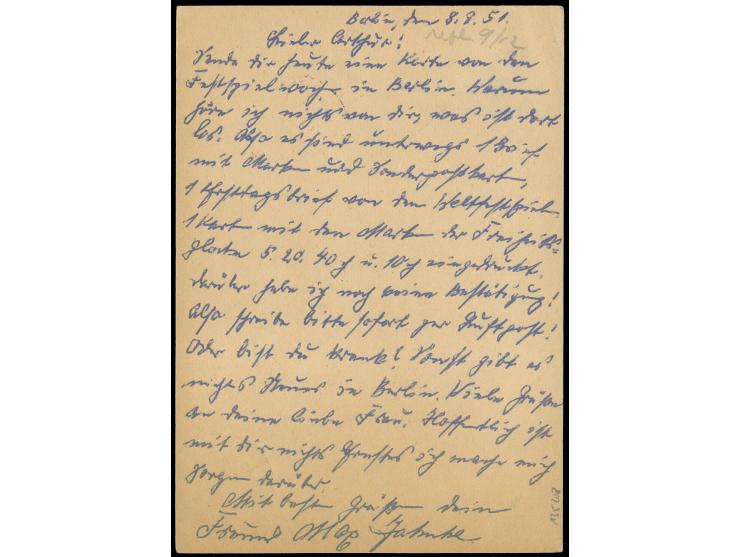 Berlin, den 8.8.51.
repl 9/12
Lieber Arthur!
Sende dir heute eine Karte von den
Festspielwoch in Berlin. Warum
höre ich nichts von dir, was ist dort
los. Also es sind unterwegs 1 Brief
mit Marken und Sonderpostkart,
1 Ersttagsbrief von den Weltfestspiel
1 Kart mit den Marken der Freiheits-
glocke 5. 20. 40 u. 10 eingedruckt.
darüber habe ich noch keine Bestätigung!
Also schreibe bitte sofort per Luftpost!
Oder bist du krank? Sonst gibt es
nichts Neues in Berlin. Viele Grüße
an deine liebe Frau. Hoffentlich ist
mit dir nichts Ernstes ich mache mich
Sorgen darüber
Mit best Grüßen dein
Freund Max Jahnke